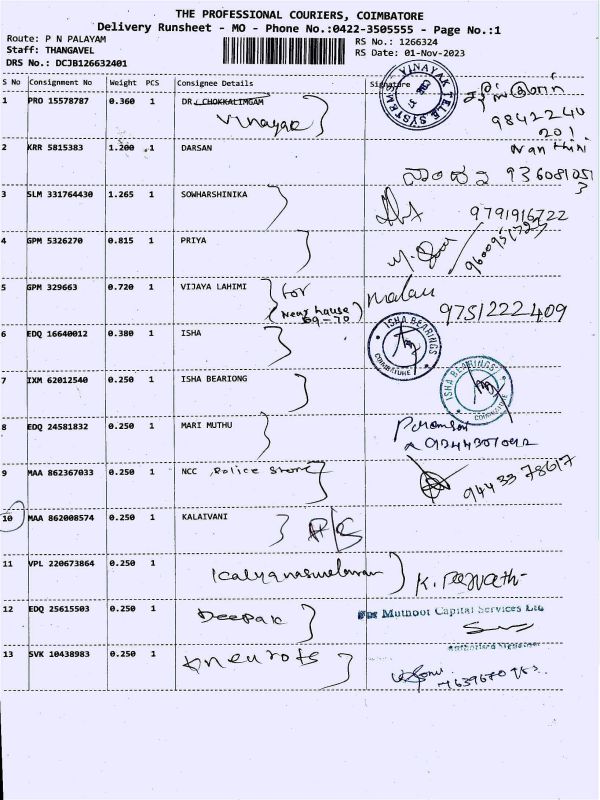 THE PROFESSIONAL COURIERS, COIMBATORE
Delivery Runsheet - MO - Phone No.:0422-3505555 - Page No.:1
Route: P N PALAYAM
RS No.: 1266324
Staff: THANGAVEL
RS Date: 01-Nov-2023
DRS No.: DCJB126632401
S No Consignment No Weight PCS Consignee Details Signature
1 PRO 15578787 0.360 1 DR. CHOKKALIMGAM
Vinayak
VINAYAK TELE SYSTEMS
9842240
201
2 KRR 5815383 1.200 .1 DARSAN
Nanthini
3 SLM 331764430 1.265 1 SOWHARSHINIKA
9791916722
4 GPM 5326270 0.815 1 PRIYA
5 GPM 329663 0.720 1 VIJAYA LAHIMI
for
(Near house
69-70
malau
9751222409
6 EDQ 16640012 0.380 1 ISHA
ISHA BEARINGS
COIMBATORE
7 IXM 62012540 0.250 1 ISHA BEARIONG
ISHA BEARINGS
COIMBATORE
8 EDQ 24581832 0.250 1 MARI MUTHU
9 MAA 862367033 0.250 1 NCC Police store
9443378617
10 MAA 862008574 0.250 1 KALAIVANI
11 VPL 220673864 0.250 1
12 EDQ 25615503 0.250 1 Deepak
For Muthoot Capital Services Ltd
Authorised Signatory
13 SVK 10438983 0.250 1